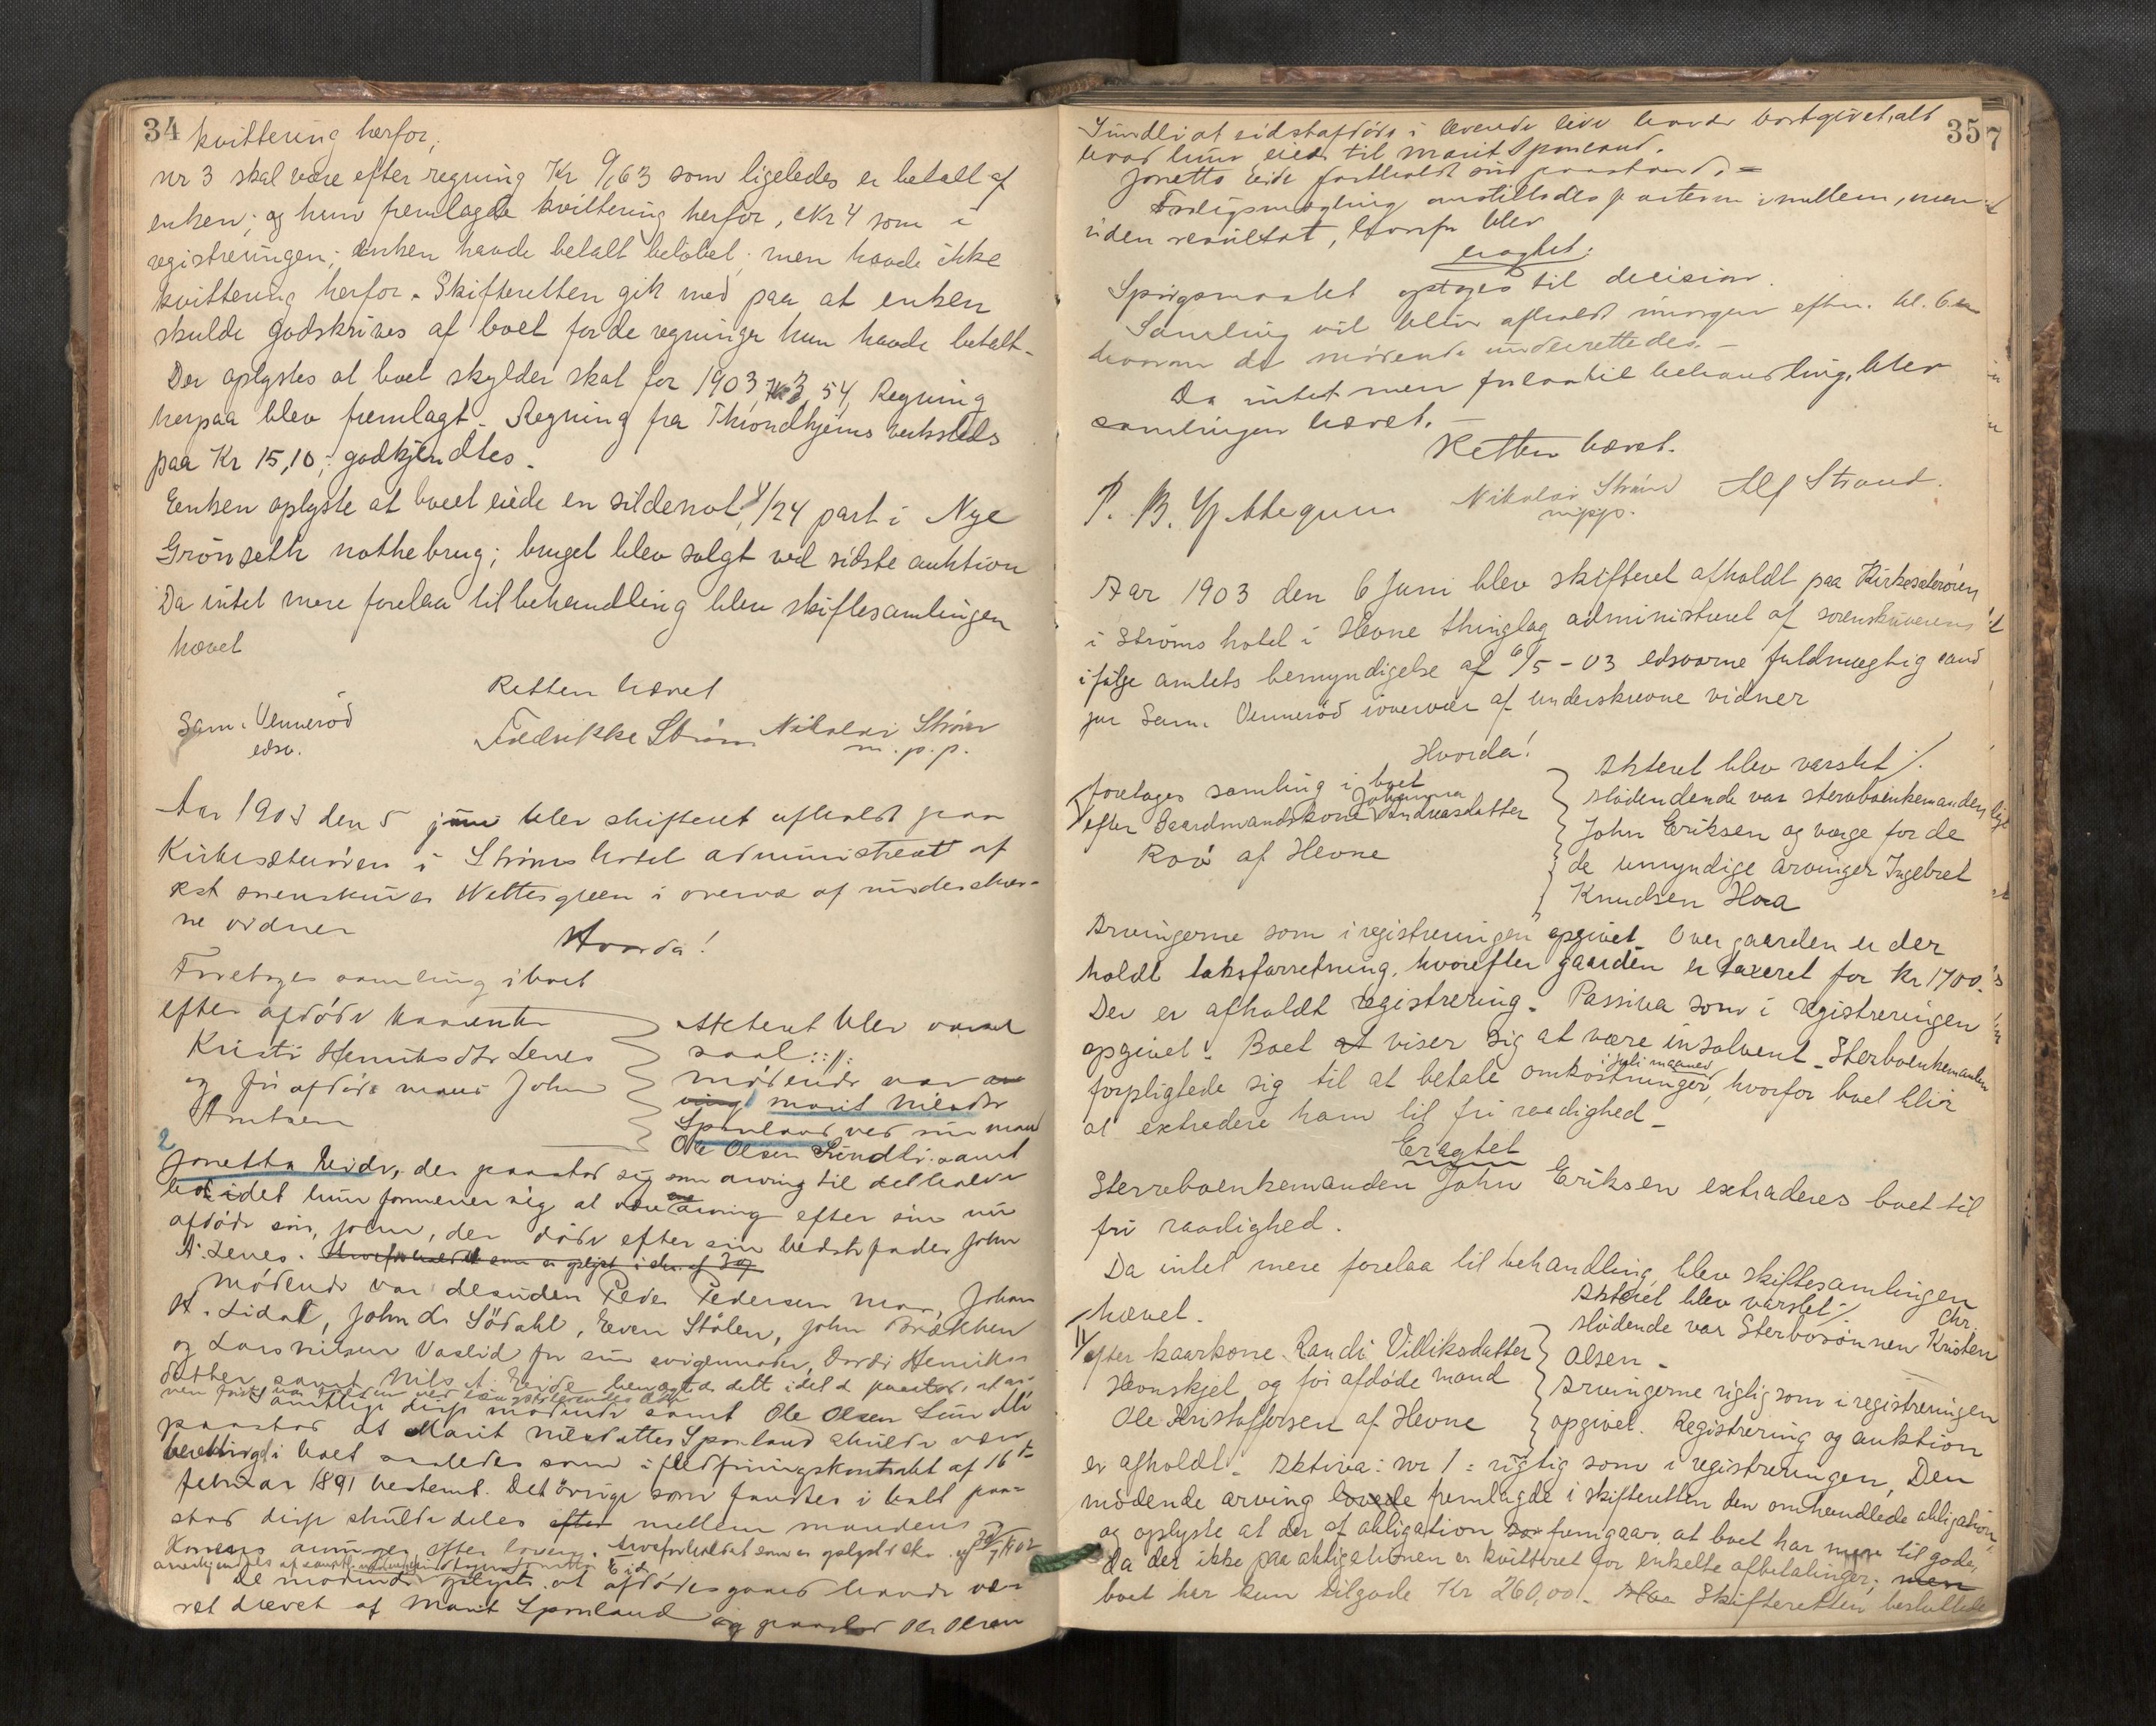 34
kvittering herfor,
nr 3 skal være efter regning Kr 9,63 som ligeledes er betalt af
enken; og hun fremlagde kvittering herfor, Nr 4 som i
registreringen; enken havde betalt beløbet; men havde ikke
kvittering herfor. Skifteretten gik med paa at enken
skulde godskrives af boet for de regninger hun havde betalt.
Der oplystes at boet skylder skat for 1903, Kr 3,54, Regning
herpaa blev fremlagt. Regning fra Throndhjems verksteds
paa Kr 15,10; godkjendtes.
Enken oplyste at boet eiede en sildenot, 1/24 part i Nye
Grønseth nothebrug; bruget blev solgt ved sidste auktion
Da intet mere forelaa til behandling blev skiftesamlingen
hævet
Retten hævet
Sam. Vennerød
edsv.
Fredrikke Strøm Nikolai Strøm
m.p.p.
Aar 1903 den 5 juni blev skifteret afholdt paa
Kirksæterøren i Strøms hotel administreret af
kst sorenskriver Wettergreen i overvær af underskrev-
ne vidner
Hvorda!
Foretoges samling i boet
efter afdøde kaarenke
Kristi Henriksdtr Lenes
og før afdøde mand John
Arntsen
Akteret blev varslet
saal ://:
mødende var
Marit Nilsdtr
Sponland ved sin mand
Ole Olsen Sundli samt
2
Jonetta Eide, der paastod sig som arving til det halve
bo idet hun formener sig at være arving efter sin nu
afdøde søn, John, der døde efter sin bedstefader John
A. Lenes.
Mødende var desuden Peder Pedersen Moe, Johan
A. Lidal, John L. Södahl, Even Stølen, John Brækken
og Lars Nilsen Vaslid for sin svigermoder, Dordi Henriks-
datter samt Nils A. Eide benægter dette idet de paastod, at
samtlige disse mødende samt Ole Olsen Sundli
paastod at Marit Nilsdatter Sponland skulde være
berettiget i boet saaledes som i fledføringskontrakt af 16de
februar 1891 bestemt. Det øvrige som fandtes i boet paa-
stod disse skulde deles mellem mandens og
konens arvinger efter loven. Arveforholdet som er oplyst i skr. af
De mødende oplyste at afdødes gaard havde væ-
ret drevet af Marit Sponland og paastod Ole Olsen
357
Sundli at sidstafdøde i levende live havde bortgivet alt
hvad hun eiede til Marit Sponland.
Jonetta Eide fastholdt sin paastand. =
Forligsmægling anstilledes parterne imellem, men
uden resultat, hvorfor blev
eragtet:
Spørgsmaalet optoges til decision.
Samling vil blive afholdt imorgen efterm. kl. 6
hvorom de mødende underrettedes. -
Da intet mere forelaa til behandling, blev
samlingen hævet. -
Retten hævet.
P. B. Wettergreen Nikolai Strøm Alf Strand.
m.p.p.
Aar 1903 den 6 Juni blev skifteret afholdt paa Kirksæterøren
i Strøms hotel i Hevne thinglag administreret af sorenskriverens
ifølge amtets bemyndigelse af 6/5 - 03 edsvorne fuldmægtig cand
jur Sam. Vennerød i overvær af underskrevne vidner
Hvorda!
foretages samling i boet
efter Gaardmandskone Johanna Andreasdatter
Roø af Hevne
Akteret blev varslet ·/.
Mødende var sterboenkemanden
John Eriksen og værge for de
de umyndige arvinger Ingebret
Knudsen Hoa
Arvingerne som i registreringen opgivet. Over gaarden er der
holdt taksforretning, hvorefter gaarden er taxeret for Kr 1700.
Der er afholdt registrering. Passiva som i registreringen
opgivet. Boet at viser sig at være insolvent. Sterboenkemanden
forpligtede sig til at betale omkostninger i Juli maaned, hvorfor boet blir
at extradere ham til fri raadighed -
Eragtet
Sterboenkemanden John Eriksen extraderes boet til
fri raadighed.
Da intet mere forelaa til behandling, blev skiftesamlingen
hævet.
efter kaarkone Randi Villiksdatter
Hevnskjel, og før afdøde mand
Ole Kristoffersen af Hevne
Akteret blev varslet ·/.
Mødende var Sterbosønnen Kristen Chr.
Olsen -
Arvingerne rigtig som i registreringen
opgivet. Registrering og auktion
er afholdt. Aktiva: nr 1: rigtig som i registreringen, Den
mødende arving lovede fremlagde i skifteretten den omhandlede obligation,
og oplyste at der af obligation fremgaar at boet har mere tilgode,
da der ikke paa obligationen er kvitteret for enkelte afbetalinger; men
boet har kun tilgode Kr 260,00. Skifteretten besluttede